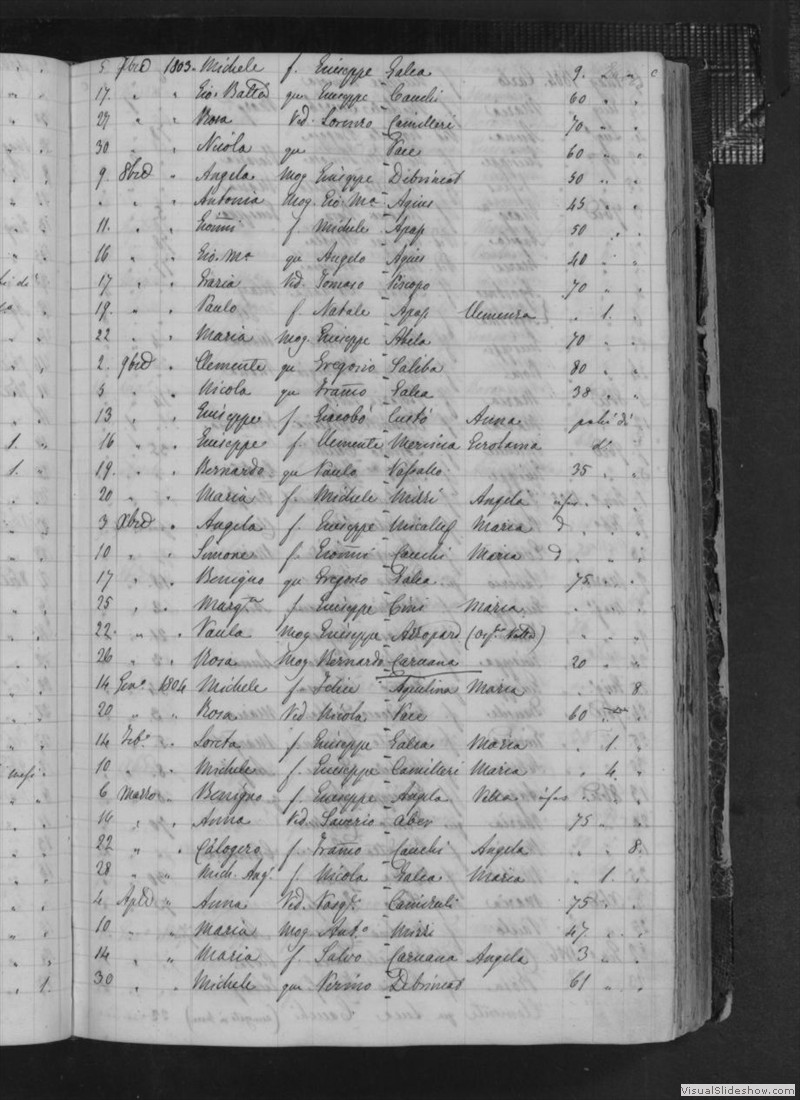 5 7bre 1803 Michele f. Giuseppe Galea 9
17 " " Gio Batta qu Giuseppe Cauchi 60
27 " " Rosa Ved. Lorenzo Camilleri 70
30 " " Nicola qu Pace 60
9 8bre " Angela Mog Giuseppe Debrincat 50
" " " Antonia Mog. Gio Ma Agius 45
11 " " Gioanni f Michele Apap 50
16 " " Gio. Ma qu Angelo Agius 40
17 " " Grazia Ved. Tomaso Piscopo 70
19 " " Paulo f Natale Apap Clemenza 1
22 " " Maria Mog. Giuseppe Abela 70
2 9bre " Clemente qu Gregorio Saliba 80
5 " " Nicola qu Franco Galea 38
13 " " Giuseppe f. Giacobo Anna
16 " " Giuseppe f Clemente Gerolama
19 " " Bernardo qu Paulo Vassallo 35
20 " " Maria f Michele Mizzi Angela
3 Xbre " Angela f Giuseppe Micallef Maria d
10 " " Simone f Gioanni Cauchi Maria d
17 " " Benigno qu Gregorio Galea 75
25 " " f Giuseppe Cini Maria
22 " " Paula Mog Giuseppe Azzopard
26 " " Rosa Mog Bernardo Caruana 20
14 Geno 1804 Michele f Felice Aquilina Maria 8
20 " " Rosa Ved Nicola Pace 60
14 Febo " Loreta f Giuseppe Galea Maria 1
10 " " Michele f. Giuseppe Camilleri Maria 4
6 Marzo " Benigno f. Giuseppe Angela Vella
16 " " Anna Ved. Saverio 75
22 " " Calogero f Franco Cauchi Angela 8
28 " " Mich. Ang. f Nicola Galea Maria 1
4 Aple " Anna Ved. 75
10 " " Maria Mog Anto Mizzi 47
14 " " Maria f Salvo Caruana Angela 3
30 " " Michele qu Debrincat 61
VisualSlideshow.com